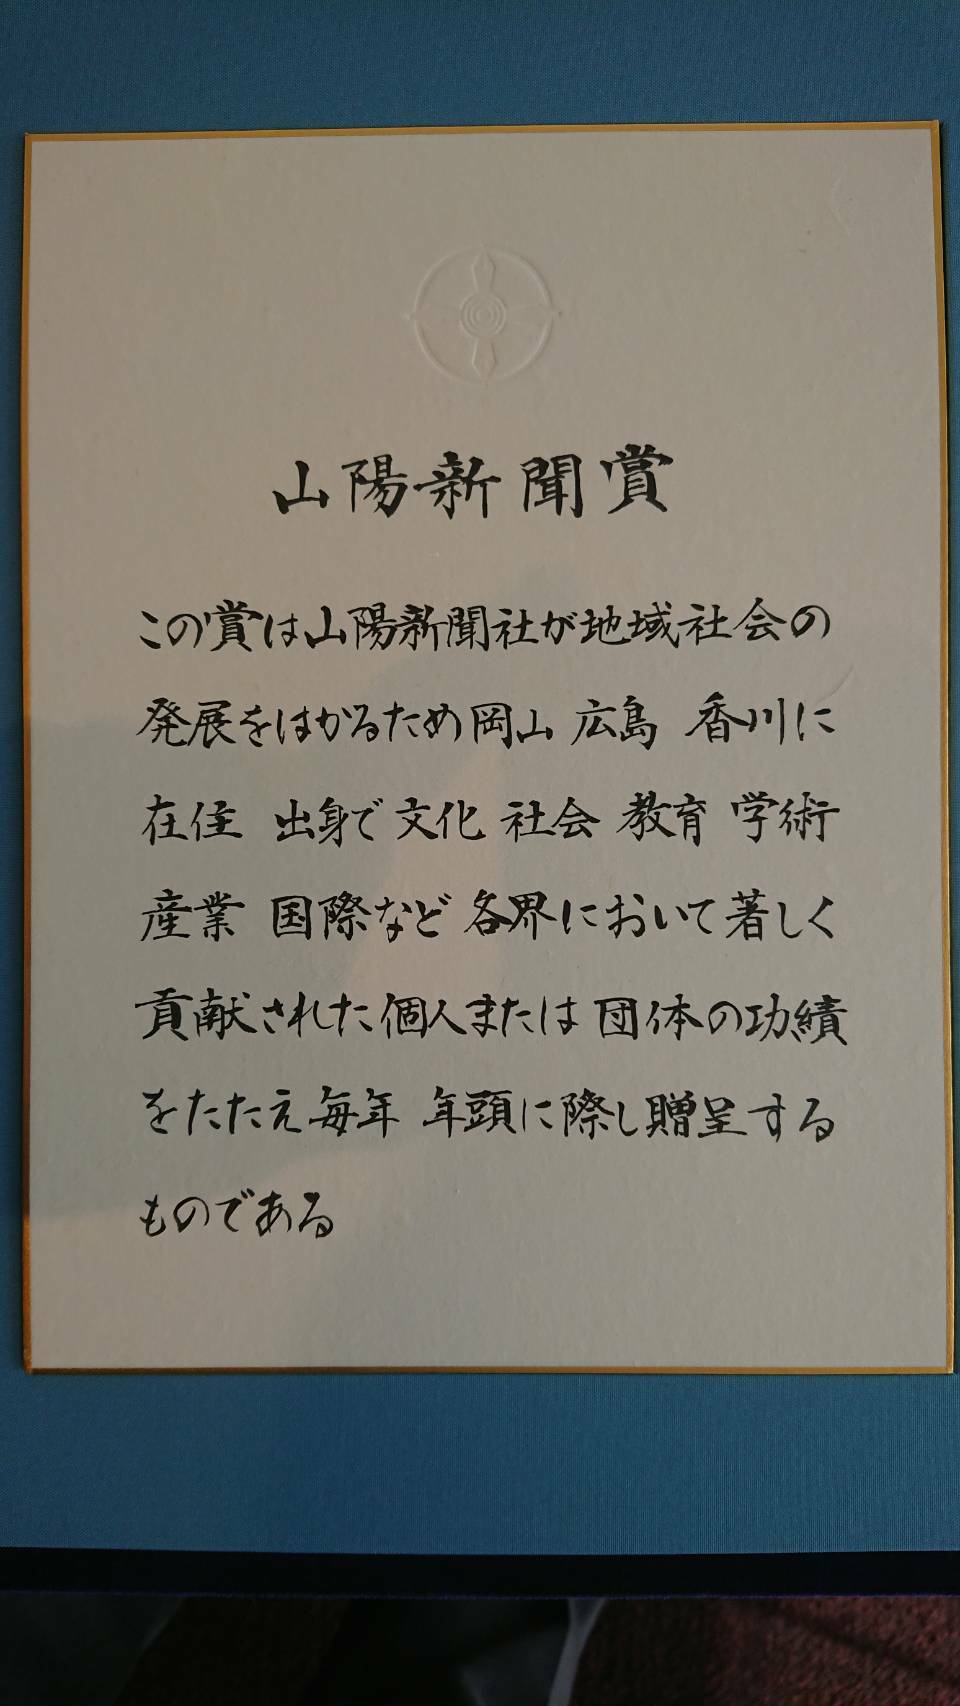 山陽新聞賞
この賞は山陽新聞社が地域社会の
発展をはかるため岡山 広島 香川に
在住 出身で 文化 社会 教育 学術
産業 国際など 各界において著しく
貢献された個人または団体の功績
をたたえ毎年 年頭に際し贈呈する
ものである